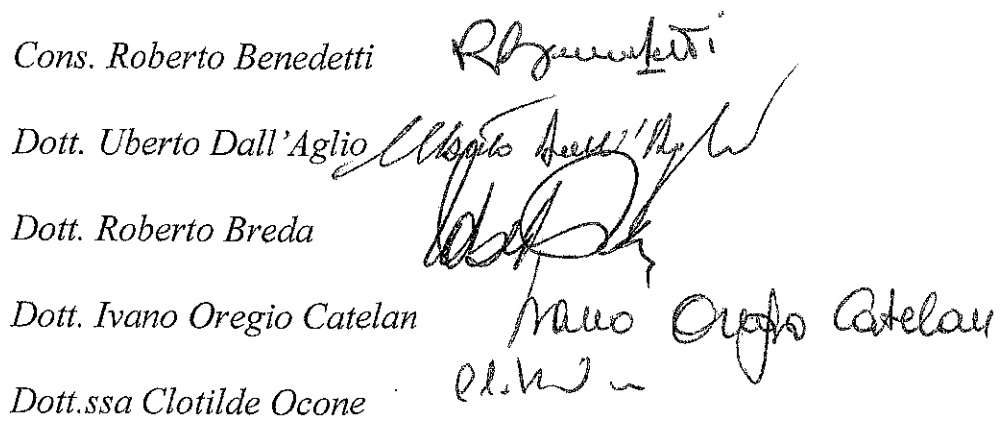 Cons. Roberto Benedetti
Dott. Uberto Dall'Aglio Uberto Dall'Aglio
Dott. Roberto Breda
Dott. Ivano Oregio Catelan Ivano Oregio Catelan
Dott.ssa Clotilde Ocone